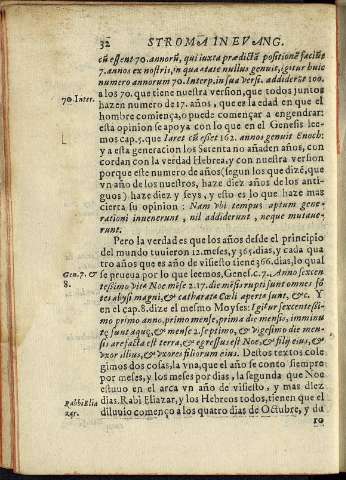 32 STROMA IN EVANG.
cũ essent 70. annorũ, qui iuxta prædictã positionẽ faciũt
7. annos ex nostris, in qua ætate nullus genuit, igitur huic
numero annorum 70. Interp. in sua Versi. addiderẽ 100.
70. Inter.
a los 70. que tiene nuestra version, que todos juntos
hazen numero de 17. años, que es la edad en que el
hombre comiença, o puede començar a engendrar:
esta opinion se apoya con lo que en el Genesis lee-
mos cap. 5. que Iaret cũ esset 162. annos genuit Enoch:
y a esta generacion los Setenta no añaden años, con
cordan con la verdad Hebrea, y con nuestra version
porque este numero de años (segun los que dizẽ, que
vn año de los nuestros, haze diez años de los anti-
guos) hazẽ diez y seys, y esto es lo que haze mas
cierta su opinion: Nam vbi tempus aptum gene-
rationi inuenerunt, nil addiderunt, neque mutaue-
runt.
Pero la verdad es que los años desde el principio
del mundo tuuieron 12. meses, y 365. dias, y cada qua
tro años que es año de visiesto tiene 366. dias, lo qual
Gen. 7. &
8.
se prueua por lo que leemos, Genes. c. 7. Anno sexcen
tessimo vitæ Noe mẽse 2. 17. die mẽsis rupti sunt omnes fõ
tes abysi magni, & catharatæ Cœli aperte sunt, &c. Y
en el cap. 8. dize el mesmo Moyses: Igitur sexcentessi-
mo primo anno, primo mense, prima die mensis, imminu
tę sunt aquę, & mense 2. septimo, & vigesimo die men-
sis arefacta est terra, & egressus est Noe, & filij eius, &
vxor illius, & vxores filiorum eius. Destos textos cole-
gimos dos cosas, la vna, que el año se conto siempre
por meses, y los meses por dias, la segunda que Noe
estuuo en el arca vn año de visiesto, y mas diez
Rabbi Elia
zar.
dias. Rabi Eliazar, y los Hebreos todos, tienen que el
diluuio començo a los quatro dias de Octubre, y du
ro